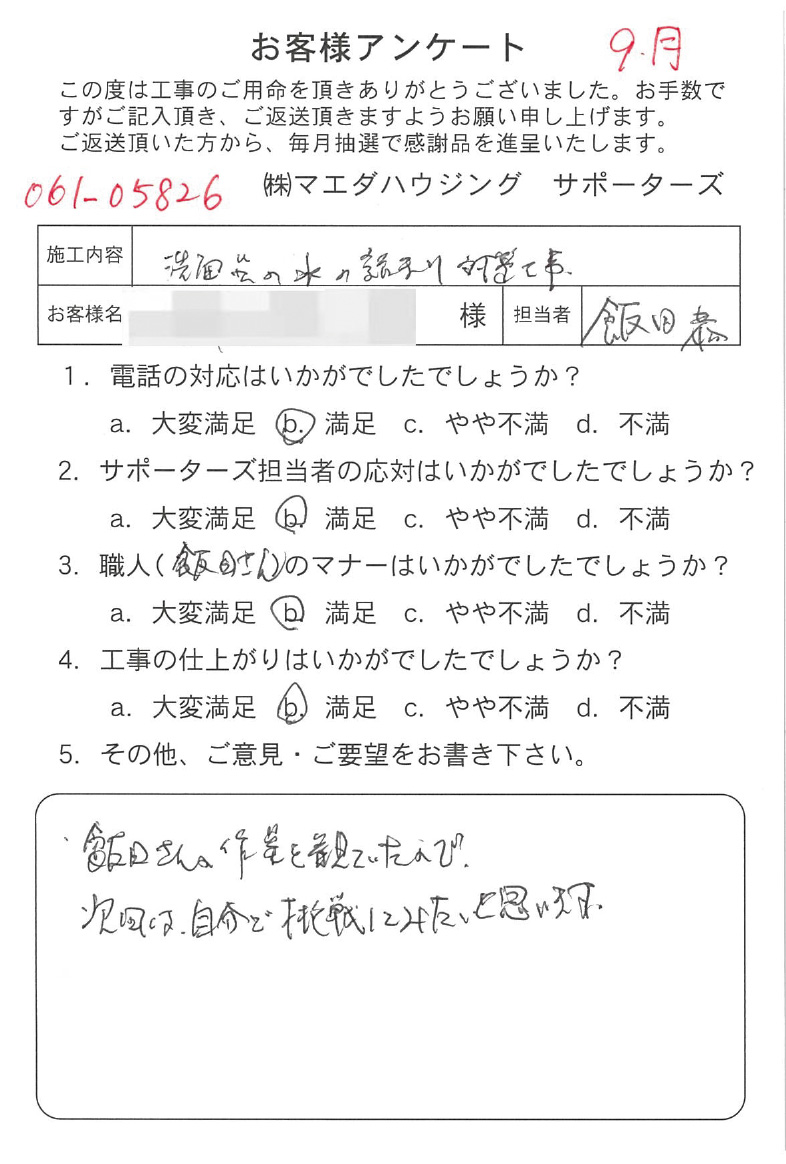 お客様アンケート 9.月
この度は工事のご用命を頂きありがとうございました。お手数で
すがご記入頂き、ご返送頂きますようお願い申し上げます。
ご返送頂いた方から、毎月抽選で感謝品を進呈いたします。
061-05826 ㈱マエダハウジング サポーターズ
施工内容 洗面台の水の詰まり対策工事.
お客様名 様 担当者 飯田恭
1. 電話の対応はいかがでしたでしょうか？
a. 大変満足 b. 満足 c. やや不満 d. 不満
2. サポーターズ担当者の応対はいかがでしたでしょうか？
a. 大変満足 b. 満足 c. やや不満 d. 不満
3. 職人(飯田さん)のマナーはいかがでしたでしょうか？
a. 大変満足 b. 満足 c. やや不満 d. 不満
4. 工事の仕上がりはいかがでしたでしょうか？
a. 大変満足 b. 満足 c. やや不満 d. 不満
5. その他、ご意見・ご要望をお書き下さい。
飯田さんの作業を観ていたので.
次回は、自分で挑戦してみたいと思います.